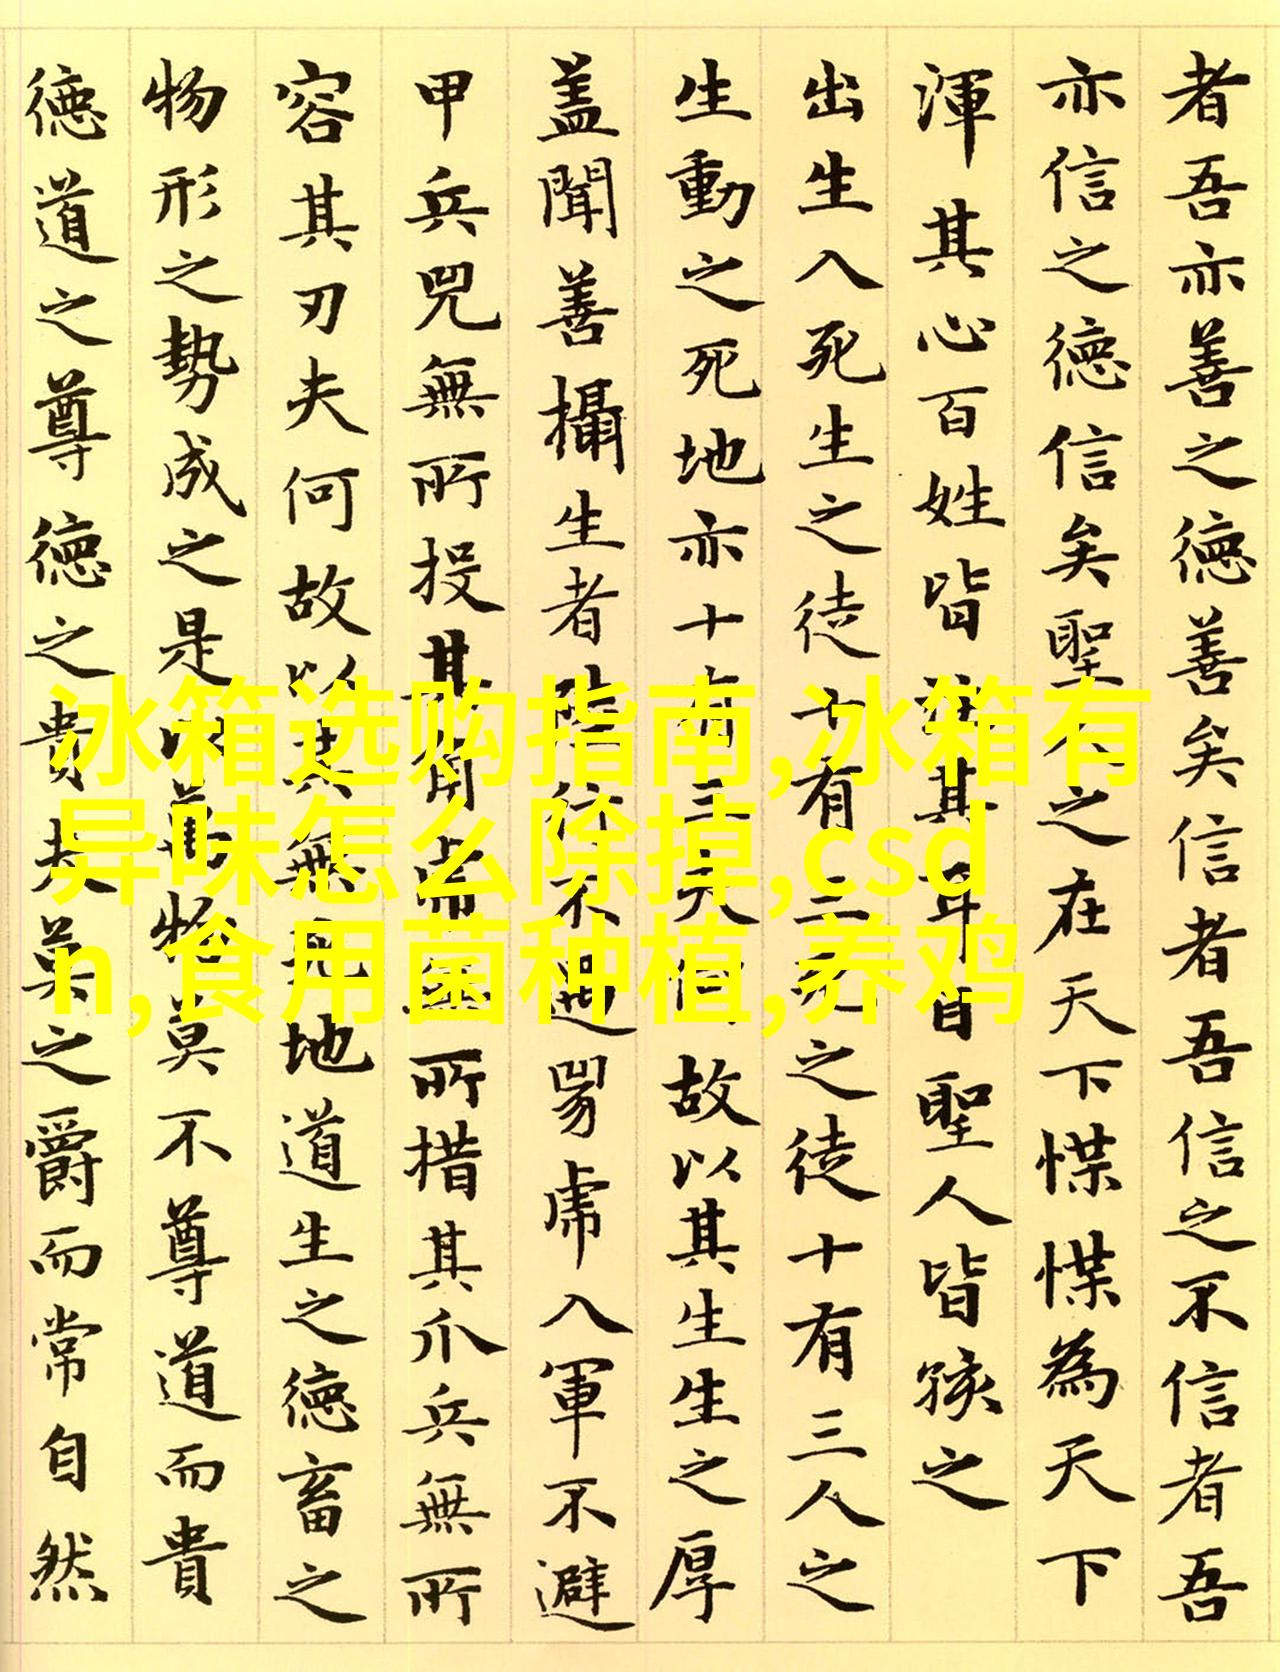 者吾亦善之德善矣信者吾信之不信者吾
亦信之德信矣聖人之在天下惵惵為天下
渾其心百姓皆注其耳目聖人皆孩之
出生入死生之徒十有三死之徒十有三人之
生動之死地亦十有三夫何故以其生生之厚
蓋聞善攝生者陸行不遇兕虎入軍不避
甲兵兕無所投其角虎無所措其爪兵無所
容其刃夫何故以其無死地道生之德畜之
物形之勢成之是以萬物莫不尊道而貴
德道之尊德之貴夫莫之爵而常自然
冰箱选购指南,冰箱有
异味怎么除掉,csd
n,食用菌种植,养鸡